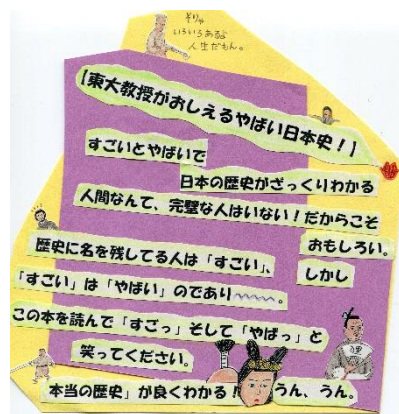 そりゃ
いろいろあるよ
人生だもん。
【東大教授がおしえるやばい日本史!】
すごいとやばいで
日本の歴史がざっくりわかる
人間なんて、完璧な人はいない!だからこそ
おもしろい。
歴史に名を残してる人は「すごい」、
しかし
「すごい」は「やばい」のであり〰〰。
この本を読んで「すごっ」そして「やばっ」と
笑ってください。
本当の歴史」が良くわかる!
うん、うん。